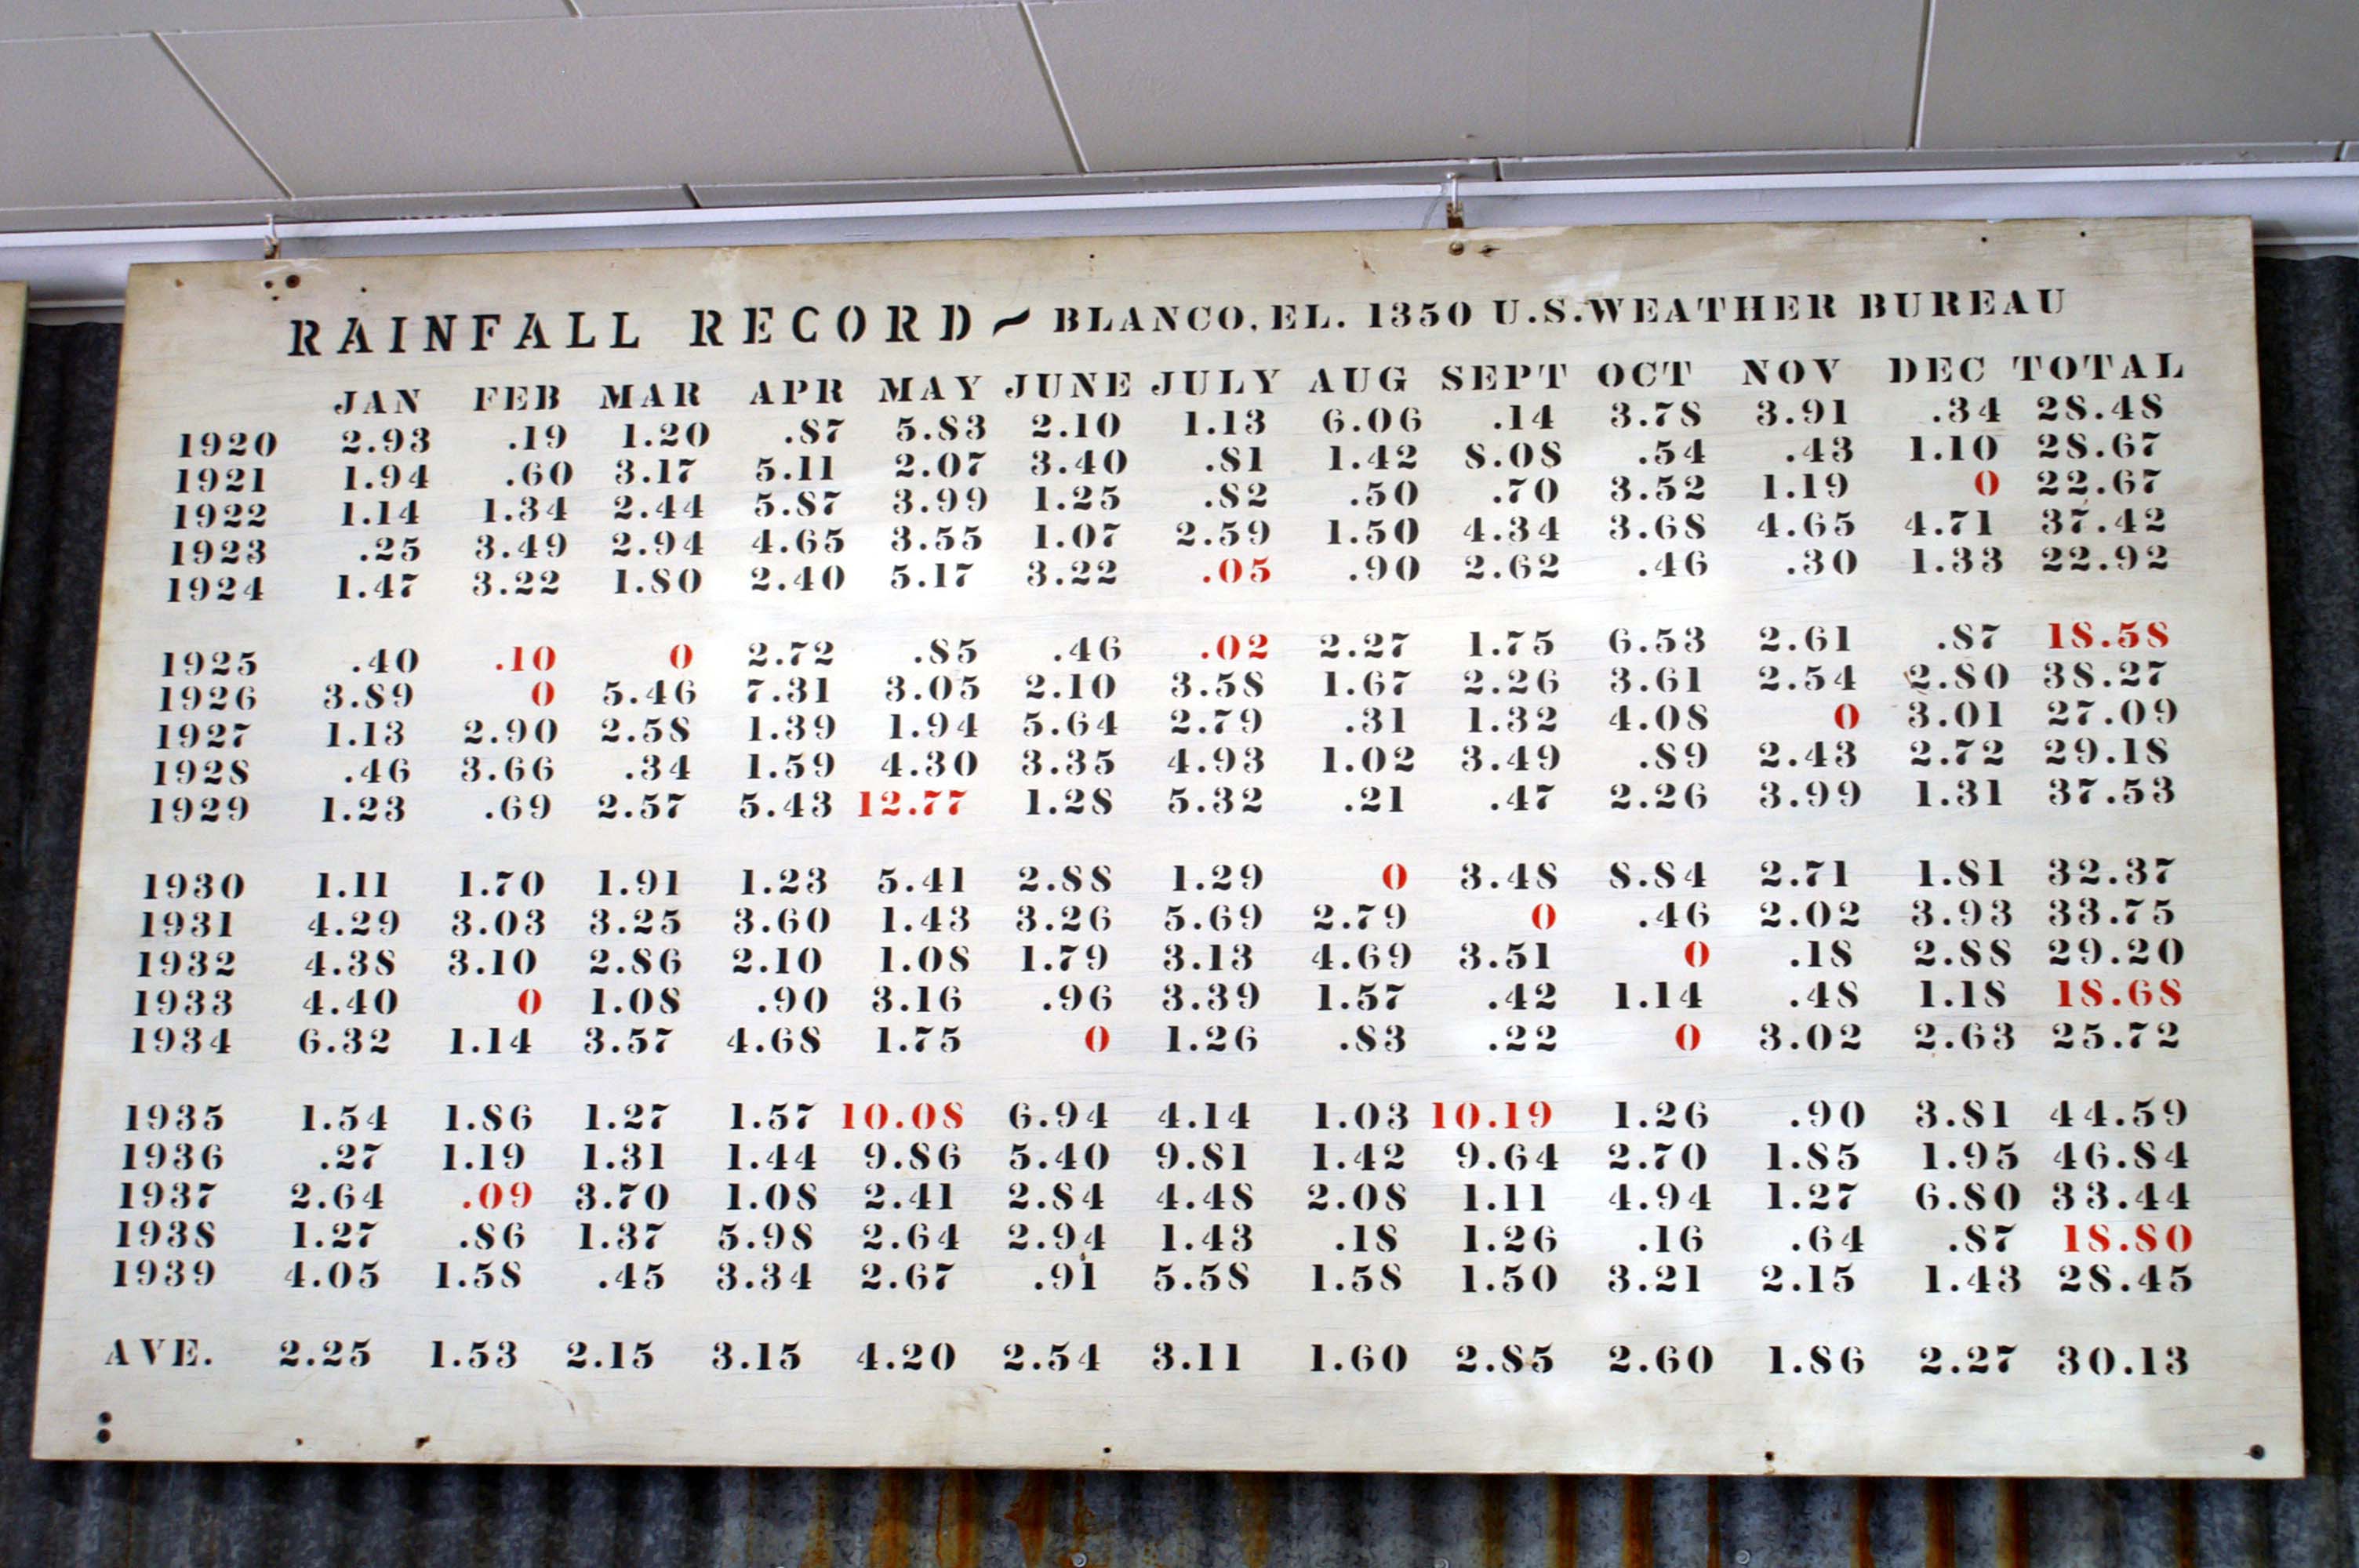 RAINFALL RECORD ~ BLANCO, EL. 1350 U.S. WEATHER BUREAU
JAN FEB MAR APR MAY JUNE JULY AUG SEPT OCT NOV DEC TOTAL
1920 2.93 .19 1.20 .87 5.83 2.10 1.13 6.06 .14 3.78 3.91 .34 28.48
1921 1.94 .60 3.17 5.11 2.07 3.40 .81 1.42 8.08 .54 .43 1.10 28.67
1922 1.14 1.34 2.44 5.87 3.99 1.25 .82 .50 .70 3.52 1.19 0 22.67
1923 .25 3.49 2.94 4.65 3.55 1.07 2.59 1.50 4.34 3.68 4.65 4.71 37.42
1924 1.47 3.22 1.80 2.40 5.17 3.22 .05 .90 2.62 .46 .30 1.33 22.92
1925 .40 .10 0 2.72 .85 .46 .02 2.27 1.75 6.53 2.61 .87 18.58
1926 3.89 0 5.46 7.31 3.05 2.10 3.58 1.67 2.26 3.61 2.54 2.80 38.27
1927 1.13 2.90 2.58 1.39 1.94 5.64 2.79 .31 1.32 4.08 0 3.01 27.09
1928 .46 3.66 .34 1.59 4.30 3.35 4.93 1.02 3.49 .89 2.43 2.72 29.18
1929 1.23 .69 2.57 5.43 12.77 1.28 5.32 .21 .47 2.26 3.99 1.31 37.53
1930 1.11 1.70 1.91 1.23 5.41 2.88 1.29 0 3.48 8.84 2.71 1.81 32.37
1931 4.29 3.03 3.25 3.60 1.43 3.26 5.69 2.79 0 .46 2.02 3.93 33.75
1932 4.38 3.10 2.86 2.10 1.08 1.79 3.13 4.69 3.51 0 .18 2.88 29.20
1933 4.40 0 1.08 .90 3.16 .96 3.39 1.57 .42 1.14 .48 1.18 18.68
1934 6.32 1.14 3.57 4.68 1.75 0 1.26 .83 .22 0 3.02 2.63 25.72
1935 1.54 1.86 1.27 1.57 10.08 6.94 4.14 1.03 10.19 1.26 .90 3.81 44.59
1936 .27 1.19 1.31 1.44 9.86 5.40 9.81 1.42 9.64 2.70 1.85 1.95 46.84
1937 2.64 .09 3.70 1.08 2.41 2.84 4.48 2.08 1.11 4.94 1.27 6.80 33.44
1938 1.27 .86 1.37 5.98 2.64 2.94 1.43 .18 1.26 .16 .64 .87 18.80
1939 4.05 1.58 .45 3.34 2.67 .91 5.58 1.58 1.50 3.21 2.15 1.43 28.45
AVE. 2.25 1.53 2.15 3.15 4.20 2.54 3.11 1.60 2.85 2.60 1.86 2.27 30.13